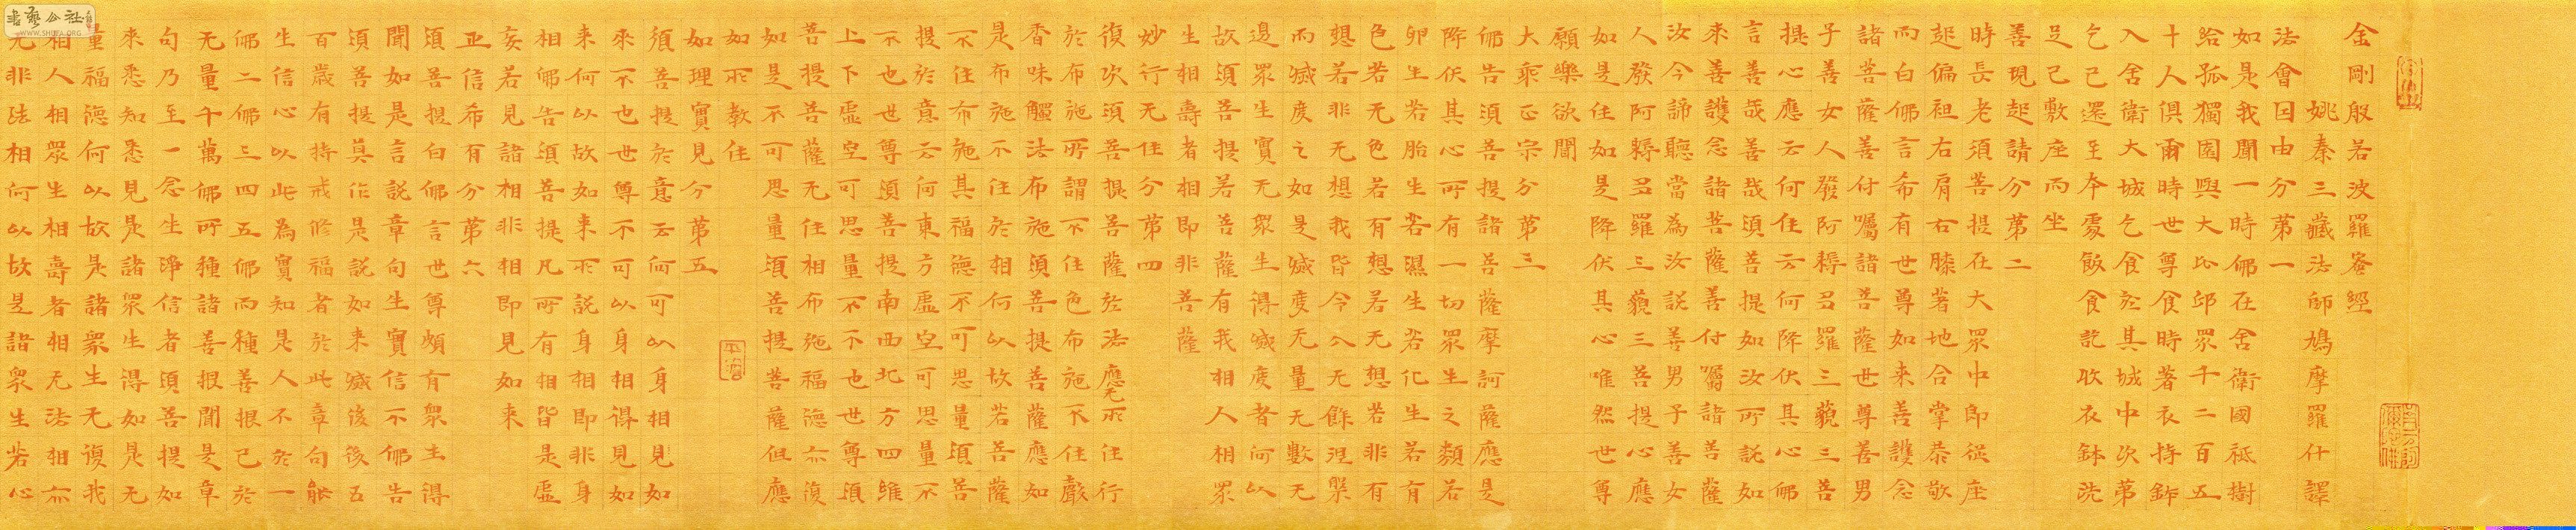 金剛般若波羅蜜經
姚秦三藏法師鳩摩羅什譯
法會因由分第一
如是我聞一時佛在舍衛國祇樹
給孤獨園與大比邱眾千二百五
十人俱爾時世尊食時著衣持鉢
入舍衛大城乞食於其城中次第
乞已還至本處飯食訖收衣鉢洗
足已敷座而坐
善現起請分第二
時長老須菩提在大眾中即從座
起偏袒右肩右膝著地合掌恭敬
而白佛言希有世尊如来善護念
諸菩薩善付囑諸菩薩世尊善男
子善女人發阿耨多羅三藐三菩
提心應云何住云何降伏其心佛
言善哉善哉須菩提如汝所說如
来善護念諸菩薩善付囑諸菩薩
汝今諦聽當為汝說善男子善女
人發阿耨多羅三藐三菩提心應
如是住如是降伏其心唯然世尊
願樂欲聞
大乘正宗分第三
佛告須菩提諸菩薩摩訶薩應是
降伏其心所有一切眾生之類若
卵生若胎生若濕生若化生若有
色若无色若有想若无想若非有
想若非无想我皆令入无餘涅槃
而滅度之如是滅度无量无數无
邊眾生實无眾生得滅度者何以
故須菩提若菩薩有我相人相眾
生相壽者相即非菩薩
妙行无住分第四
復次須菩提菩薩於法應无所住行
於布施所謂不住色布施不住聲
香味觸法布施須菩提菩薩應如
是布施不住於相何以故若菩薩
不住布施其福德不可思量須菩
提於意云何東方虛空可思量不
不也世尊須菩提南西北方四維
上下虛空可思量不不也世尊須
菩提菩薩无住相布施福德亦復
如是不可思量須菩提菩薩但應
如所教住
如理實見分第五
須菩提於意云何可以身相見如
來不也世尊不可以身相得見如
来何以故如来所說身相即非身
相佛告須菩提凡所有相皆是虛
妄若見諸相非相即見如来
正信希有分第六
須菩提白佛言世尊頗有眾生得
聞如是言說章句生實信不佛告
須菩提莫作是說如来滅後後五
百歲有持戒修福者於此章句能
生信心以此為實知是人不於一
佛二佛三四五佛而種善根已於
无量千萬佛所種諸善根聞是章
句乃至一念生淨信者須菩提如
来悉知悉見是諸眾生得如是无
量福德何以故是諸眾生无復我
相人相眾生相壽者相无法相亦
无非法相何以故是諸眾生若心
書藝公社
WWW.SHUFA.ORG